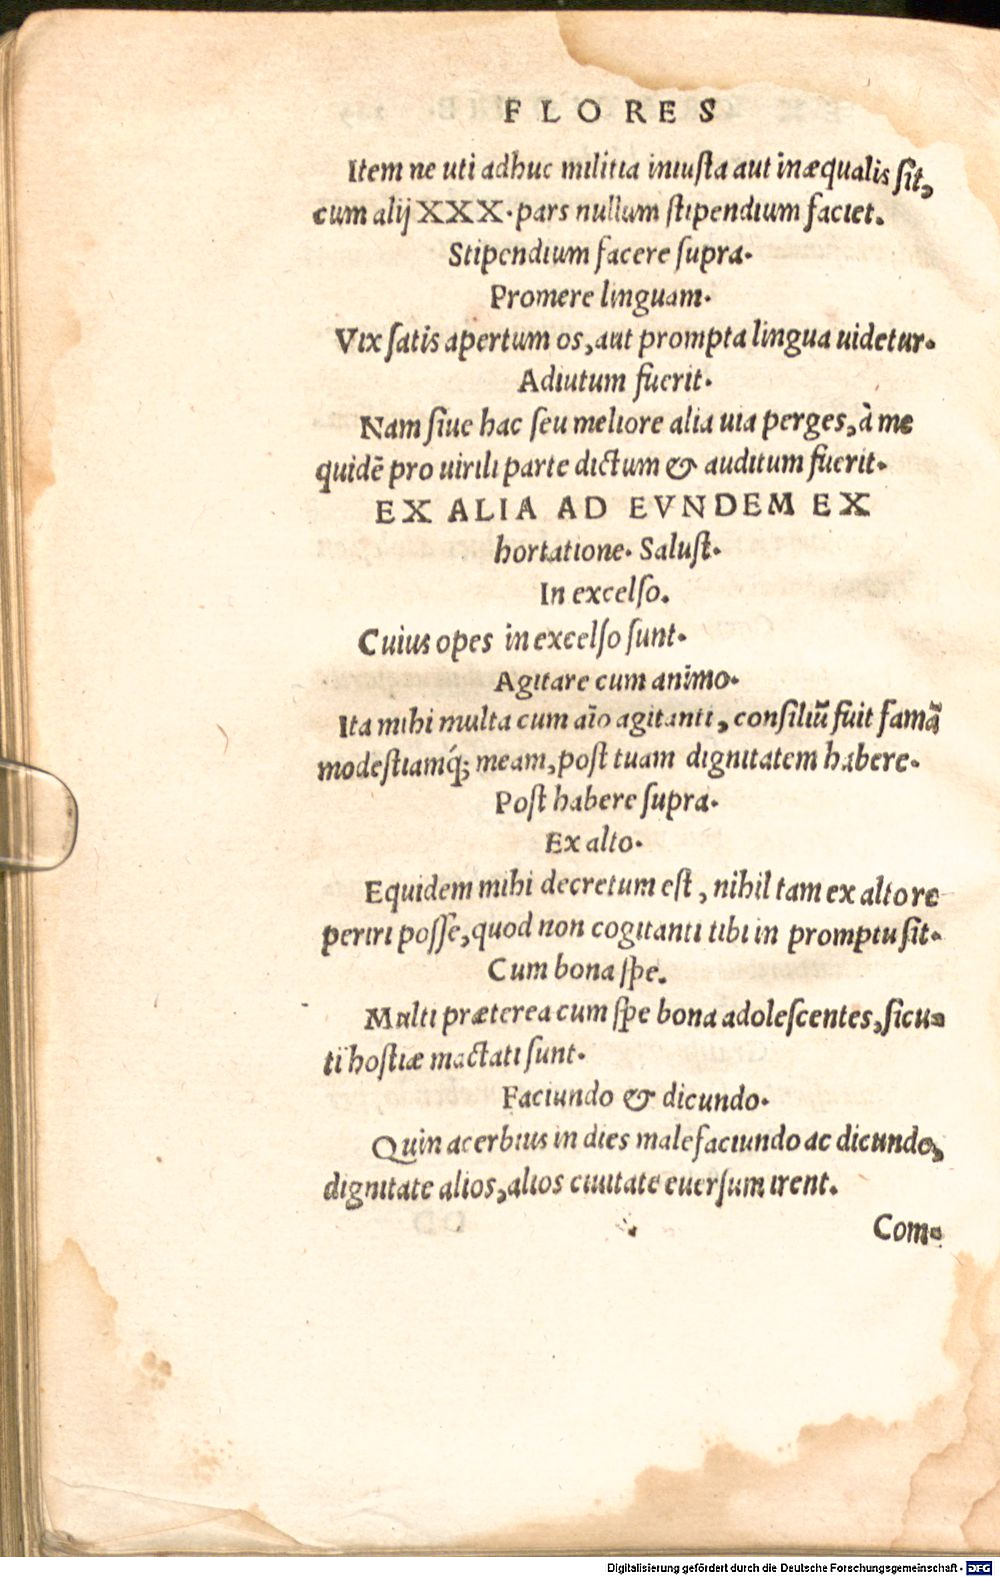 FLORES
Item ne uti adhuc militia iniusta aut inæqualis sit,
cum alij XXX. pars nullum stipendium faciet.
Stipendium facere supra.
Promere linguam.
Vix satis apertum os, aut prompta lingua uidetur.
Adiutum fuerit.
Nam siue hac seu meliore alia uia perges, à me
quidẽ pro uirili parte dictum & auditum fuerit.
EX ALIA AD EVNDEM EX
hortatione. Salust.
In excelso.
Cuius opes in excelso sunt.
Agitare cum animo.
Ita mihi multa cum aĩo agitanti, consiliũ fuit famã
modestiamq́; meam, post tuam dignitatem habere.
Post habere supra.
Ex alto.
Equidem mihi decretum est, nihil tam ex alto re
periri posse, quod non cogitanti tibi in promptu sit.
Cum bona spe.
Multi præterea cum spe bona adolescentes, sicu-
ti hostiæ mactati sunt.
Faciundo & dicundo.
Quin acerbius in dies male faciundo ac dicundo,
dignitate alios, alios ciuitate euersum irent.
Com-
Digitalisierung gefördert durch die Deutsche Forschungsgemeinschaft - DFG